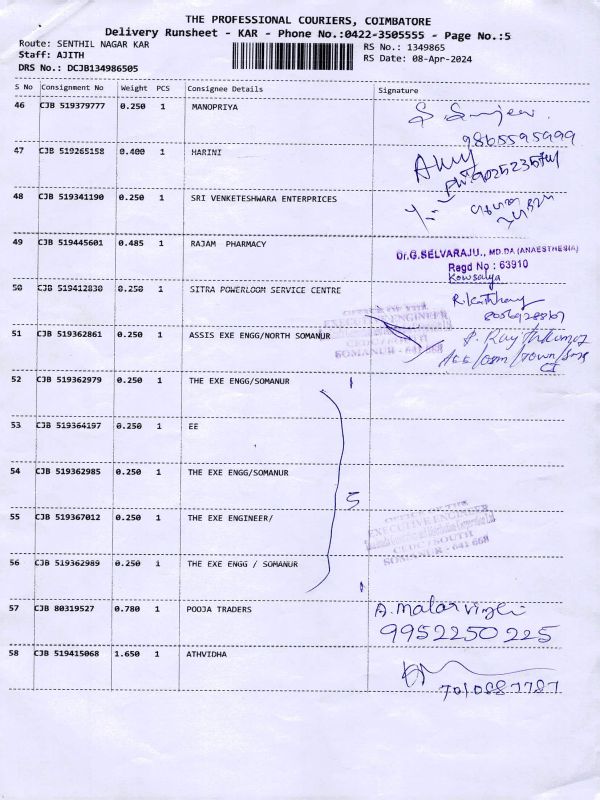 THE PROFESSIONAL COURIERS, COIMBATORE
Delivery Runsheet - KAR - Phone No.:0422-3505555 - Page No.:5
Route: SENTHIL NAGAR KAR RS No.: 1349865
Staff: AJITH RS Date: 08-Apr-2024
DRS No.: DCJB134986505
S No Consignment No Weight PCS Consignee Details Signature
46 CJB 519379777 0.250 1 MANOPRIYA
9865595999
47 CJB 519265158 0.400 1 HARINI
48 CJB 519341190 0.250 1 SRI VENKETESHWARA ENTERPRICES
49 CJB 519445601 0.485 1 RAJAM PHARMACY
Dr.G.SELVARAJU., MD.DA (ANAESTHESIA)
Regd No : 63910
Kowsalya
50 CJB 519412830 0.250 1 SITRA POWERLOOM SERVICE CENTRE
OFFICE OF THE
EXECUTIVE ENGINEER
SOMANUR - 641 668
51 CJB 519362861 0.250 1 ASSIS EXE ENGG/NORTH SOMANUR
52 CJB 519362979 0.250 1 THE EXE ENGG/SOMANUR
53 CJB 519364197 0.250 1 EE
54 CJB 519362985 0.250 1 THE EXE ENGG/SOMANUR
5
55 CJB 519367012 0.250 1 THE EXE ENGINEER/
OFFICE OF THE
EXECUTIVE ENGINEER
CEDC/SOUTH
SOMANUR - 641 668
56 CJB 519362989 0.250 1 THE EXE ENGG / SOMANUR
57 CJB 80319527 0.780 1 POOJA TRADERS
A. Malarvizhi
9952250225
58 CJB 519415068 1.650 1 ATHVIDHA
7010887787